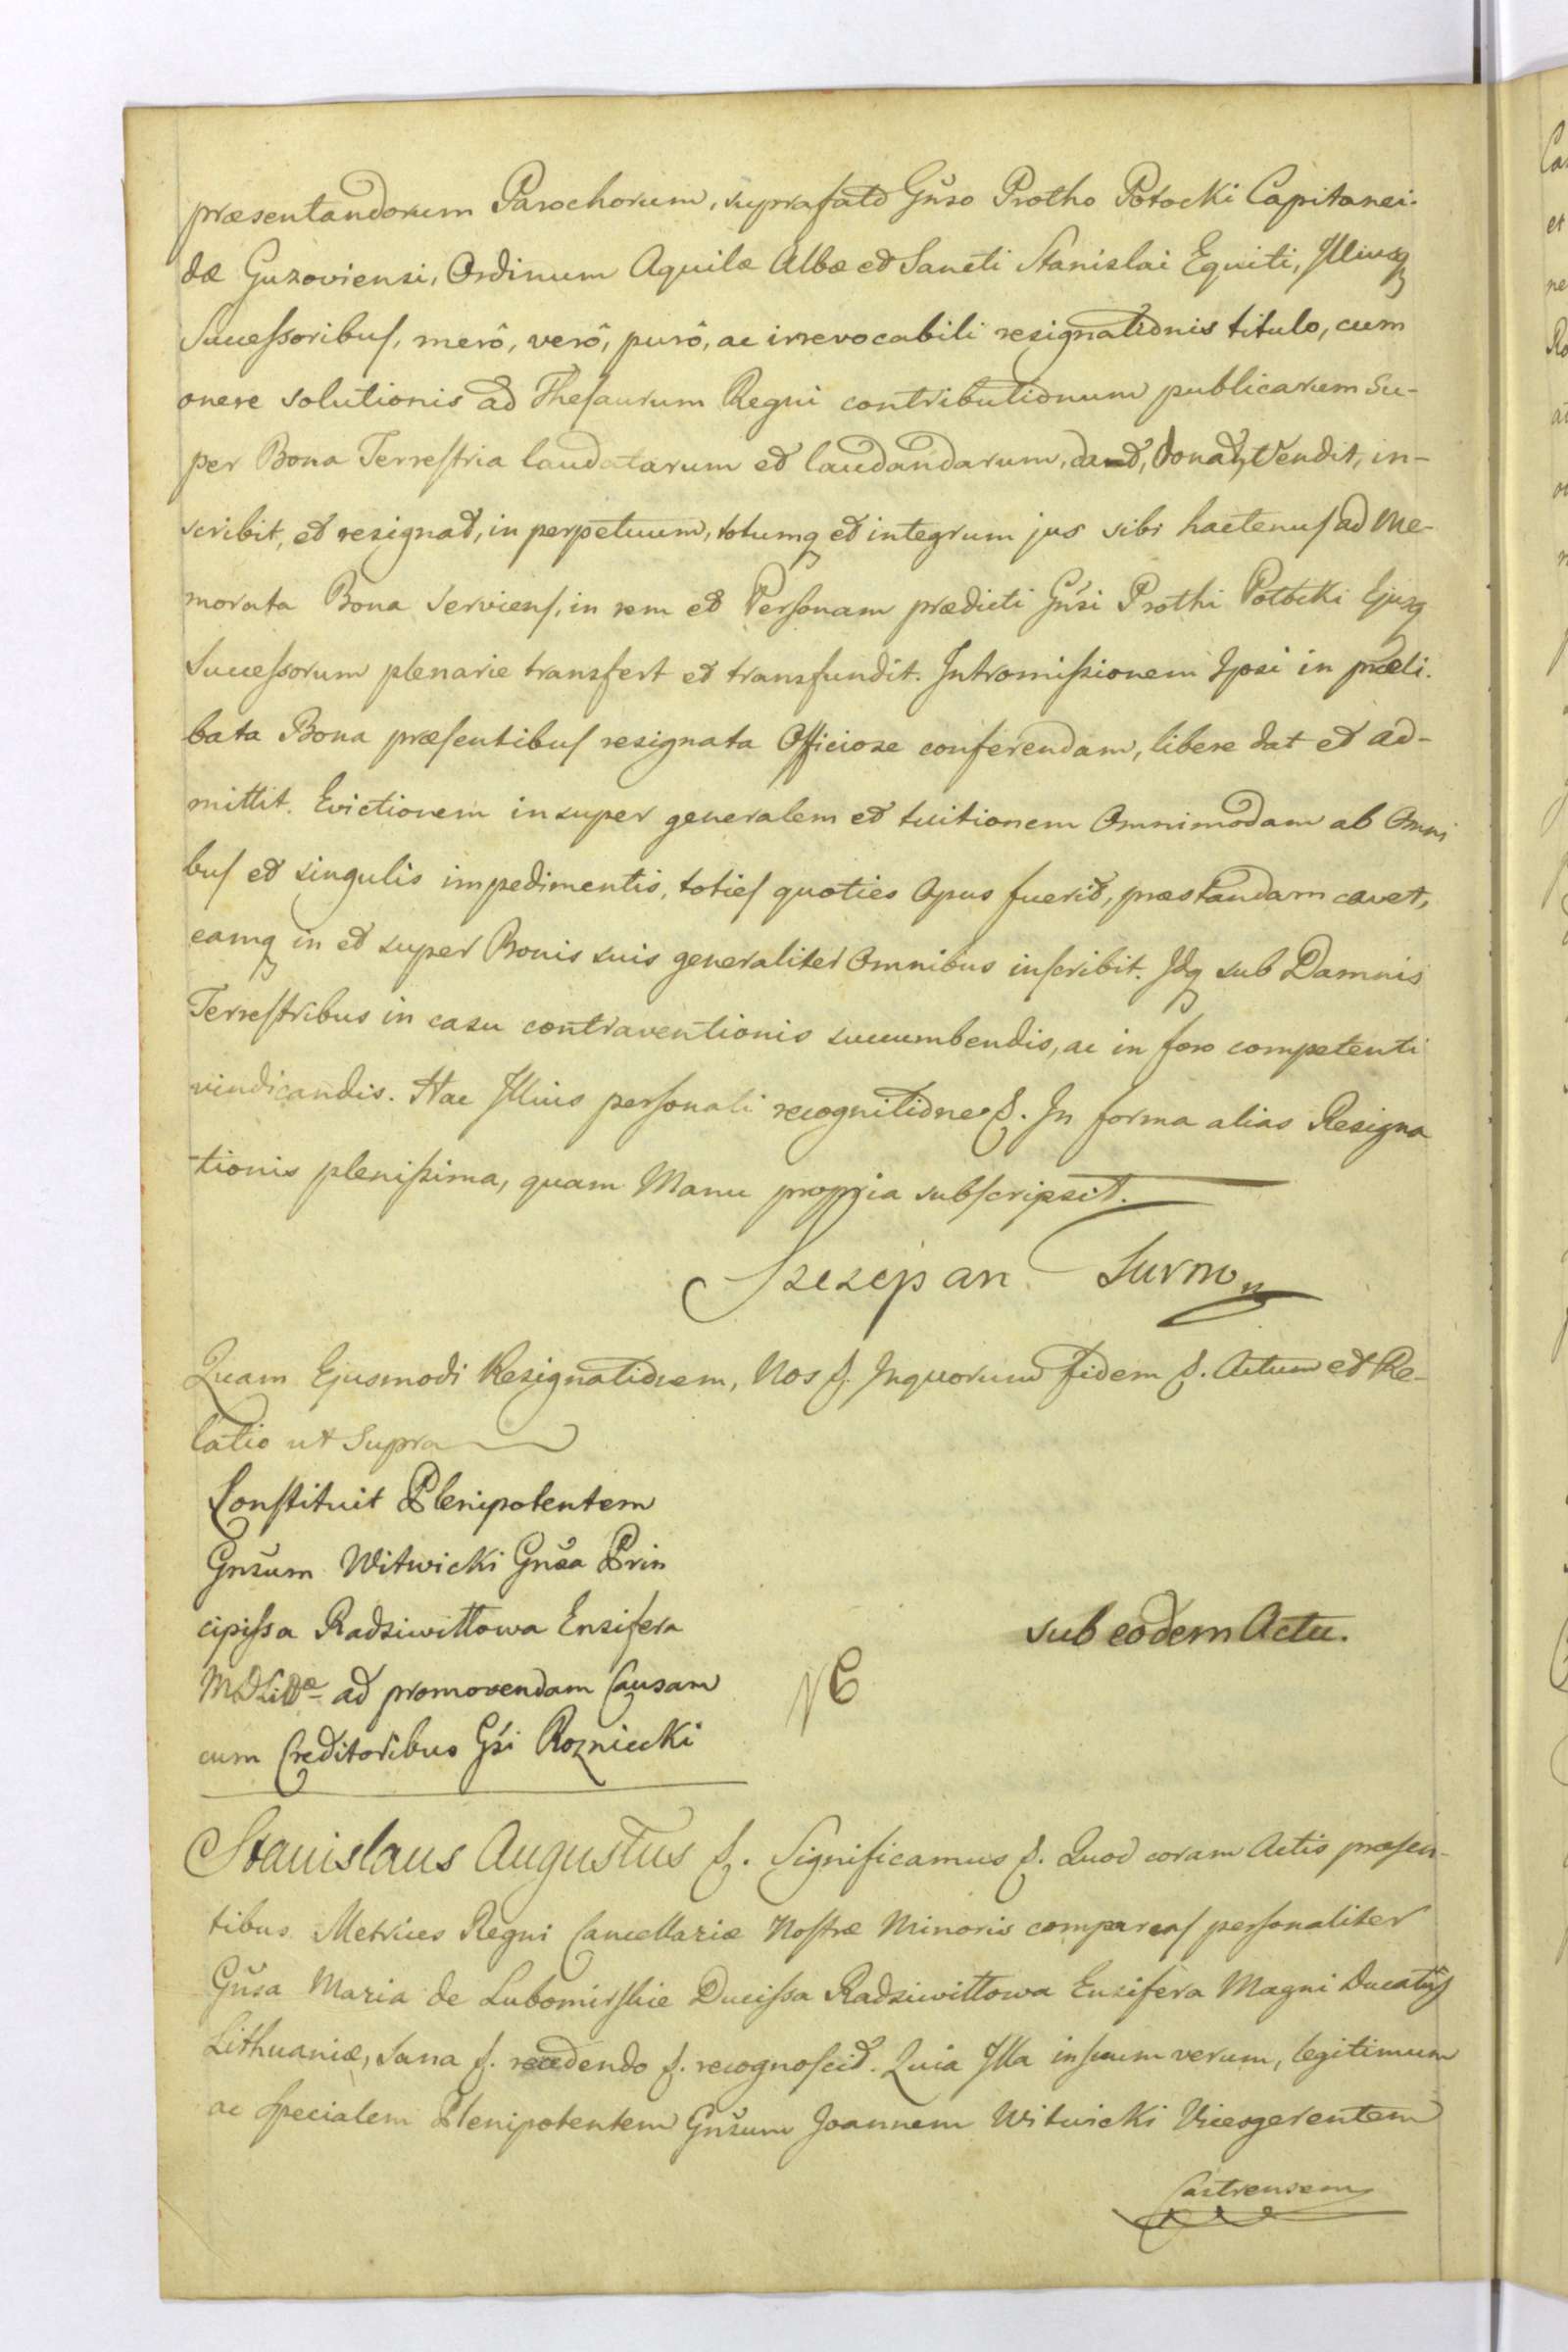 præsentandorum Parochorum, suprafato Gnso Protho Potocki Capitanei-
dæ Guzoviensi, Ordinum Aquilæ Albæ et Sancti Stanislai Equiti, Illiusq
Successoribus, merô, verô, purô, ac irrevocabili resignationis titulo, cum
onere solutionis ad Thesaurum Regni contributionum publicarum su-
per Bona Terrestria laudatarum et laudandarum, dat, donat, Vendit, in-
scribit, et resignat, in perpetuum, totumq et integrum jus sibi hactenus ad Me-
morata Bona serviens, in rem et Personam prædicti Gnsi Prothi Potocki Ejusq
Successorum plenarie transfert et transfundit. Intromissionem Ipsi in præli-
bata Bona præsentibus resignata Officiose conferendam, libere dat et ad-
mittit. Evictionem insuper generalem et tuitionem Omnimodam ab Omni
bus et singulis impedimentis, toties quoties Opus fuerit, præstandam cavet,
eamq in et super Bonis suis generaliter Omnibus inscribit. Idq sub Damnis
Terrestribus in casu contraventionis succumbendis, ac in foro competenti
vindicandis. Hac Illius personali recognitione f. In forma alias Resigna
-tionis plenissima, quam Manu propria subscripsit.
Szczepan Turno
Quam Ejusmodi Resignationem, Nos f. Inquorum fidem f. Actum et Re-
latio ut Supra
Constituit Plenipotentem
Gnsum Witwicki Gnsa Prin
cipissa Radziwiłłowa Ensifera
MDLittæ ad promovendam Causam
cum Creditoribus Gsi Rozniecki
sub eodem Actu.
Stanislaus Augustus f. Significamus f. Quod coram Actis præsen-
tibus Metrices Regni Cancellariæ Nostræ Minoris comparens personaliter
Gnsa Maria de Lubomirskie Ducissa Radziwiłłowa Ensifera Magni Ducatûs
Lithuaniæ, sana f. recedendo f. recognoscit. Quia Illa insuum verum, legitimum
ac specialem Plenipotentem Gnsum Joannem Witwicki Vicesgerentem
Castrensem